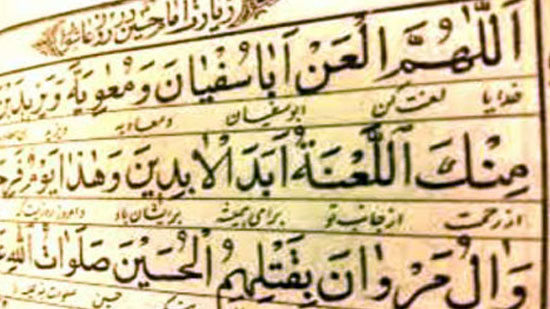 زیارت امام حسین در روز عاشورا
اَللّٰهُمَّ الْعَنْ اَبَا سُفْيَانَ وَمُعٰوِيَةَ وَيَزِيدَ
خدایا لعنت کن ابوسفیان و معاویه و یزید
مِنْكَ اللَّعْنَةُ اَبَدَ الْاٰبِدِينَ وَهٰذَا يَوْمٌ فَرِحَ
از رحمت از جانب تو برای همیشه برایشان باد و امروز روزیست که
وَاٰلُ مَرْوَانَ بِقَتْلِهِمُ الْحُسَيْنَ صَلَوَاتُ اللّٰهِ
حسین